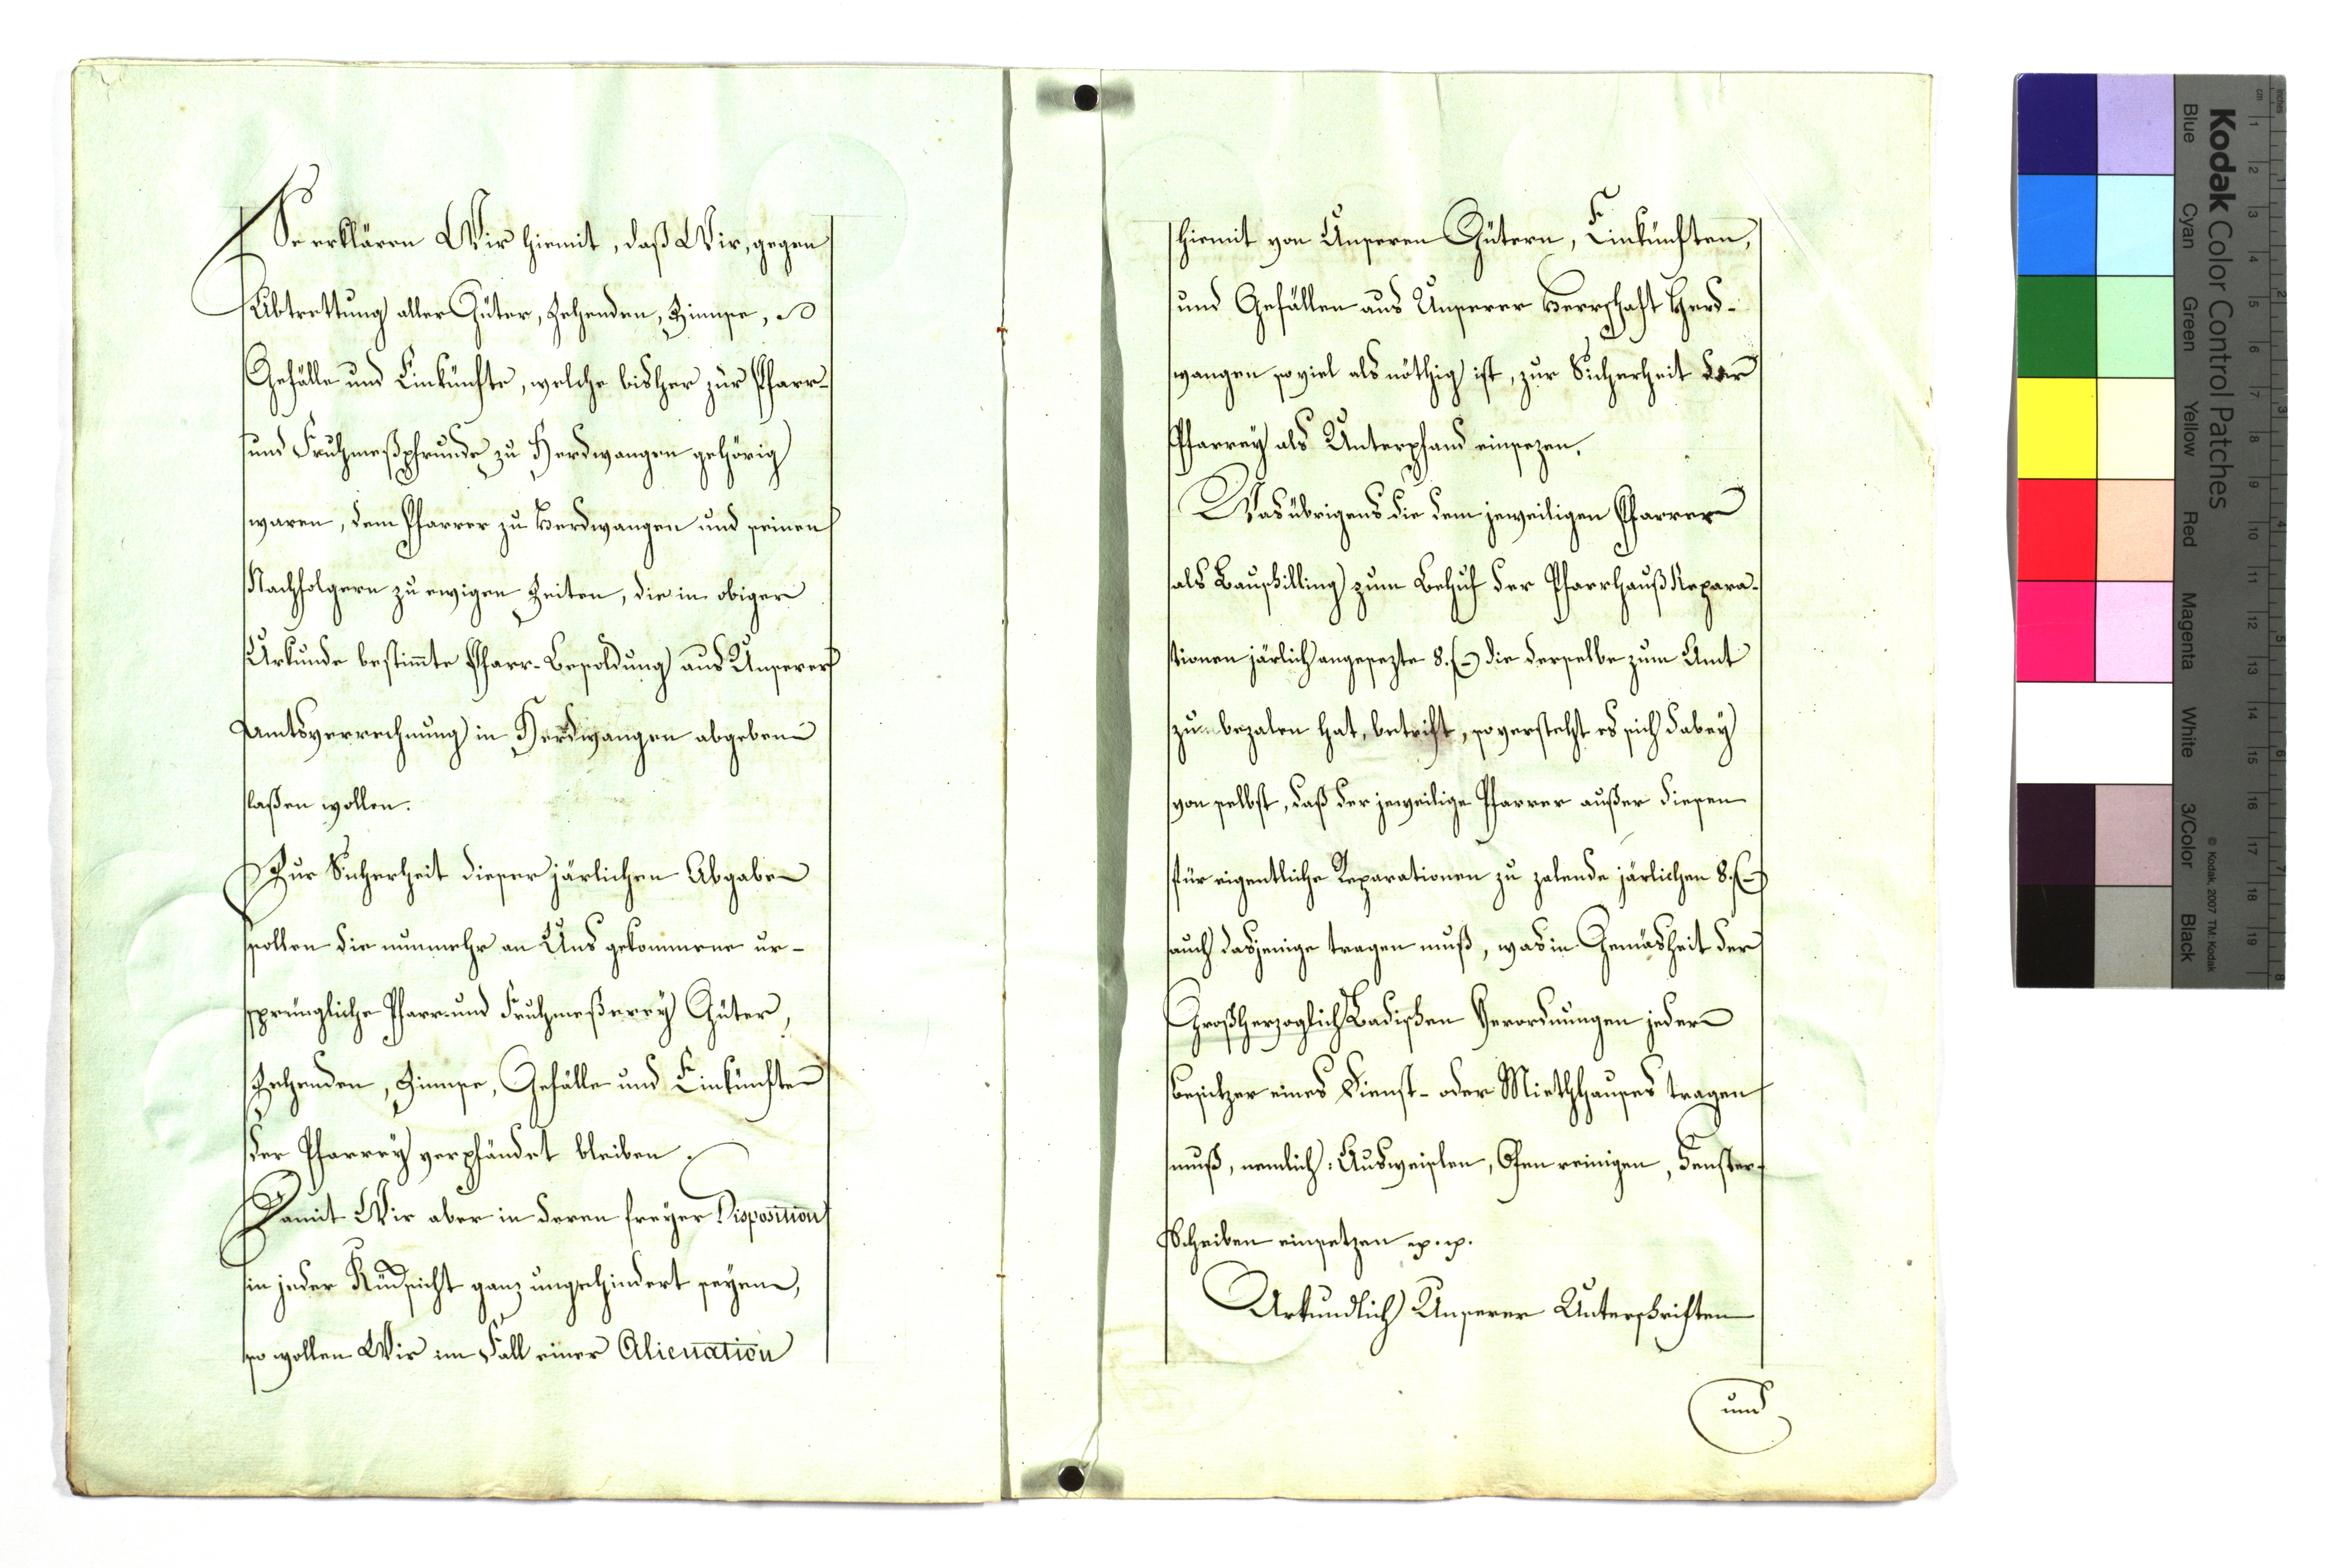 So erklären Wir hiemit, daß Wir, gegen
Abtrettung aller Güter, Zehenden, Zinnse,
Gefälle und Einkünfte, welche bisher zur Pfarr-
und Fruhmeßpfrunde zu Herdwangen gehörig
waren, dem Pfarrer zu Herdwangen und seinen
Nachfolgern zu ewigen Zeiten, die in obiger
Urkunde bestimmte Pfarr-Besoldung aus Unserer
Amtsverrechnung in Herdwangen abgeben
laßen wollen.
Zur Sicherheit dieser järlichen Abgaben
sollen die nunmehr an Uns gekommene ur-
sprüngliche Pfarr- und Fruhmeßerey Güter,
Zehenden, Zinnse, Gefälle und Einkünfte
der Pfarrey verpfändet bleiben.
Damit Wir aber in deren freyer Disposition
in jeder Rüdsicht ganz ungehindert seyen,
so wollen Wir im Fall einer Alienation
hiemit von Unseren Gütern, Einkünften,
und Gefällen aus Unserer Herrschaft Herd-
wangen so viel als nöthig ist, zur Sicherheit der
Pfarrey als Unterpfand einsezen.
Was übrigens die dem jeweiligen Pfarrer
als Bauschilling zum Behuf der Pfarrhauß Repara-
tionen järlich angesezte 8. f – die derselbe zum Amt
zu bezalen hat, betrift, so versteht es sich dabey
von selbst, daß der jeweilige Pfarrer außer diesen
für eigentliche Reparationen zu zalende järlichen 8. f –
auch dasjenige tragen muß, was in Gemäsheit der
Großherzoglich Badischen Verordnungen jeder
Besitzer eines Dienst- oder Miethhauses tragen
muß, nemlich: Ausweislen, Ofen reinigen, Fenster-
Scheiben einsetzen p. p.
Urkundlich Unserer Unterschriften
und
Kodak Color Control Patches
Blue Cyan Green Yellow Red Magenta White 3/Color Black
© Kodak, 2007 TM: Kodak
inches 1 2 3 4 5 6 7 8
cm 1 2 3 4 5 6 7 8 9 10 11 12 13 14 15 16 17 18 19